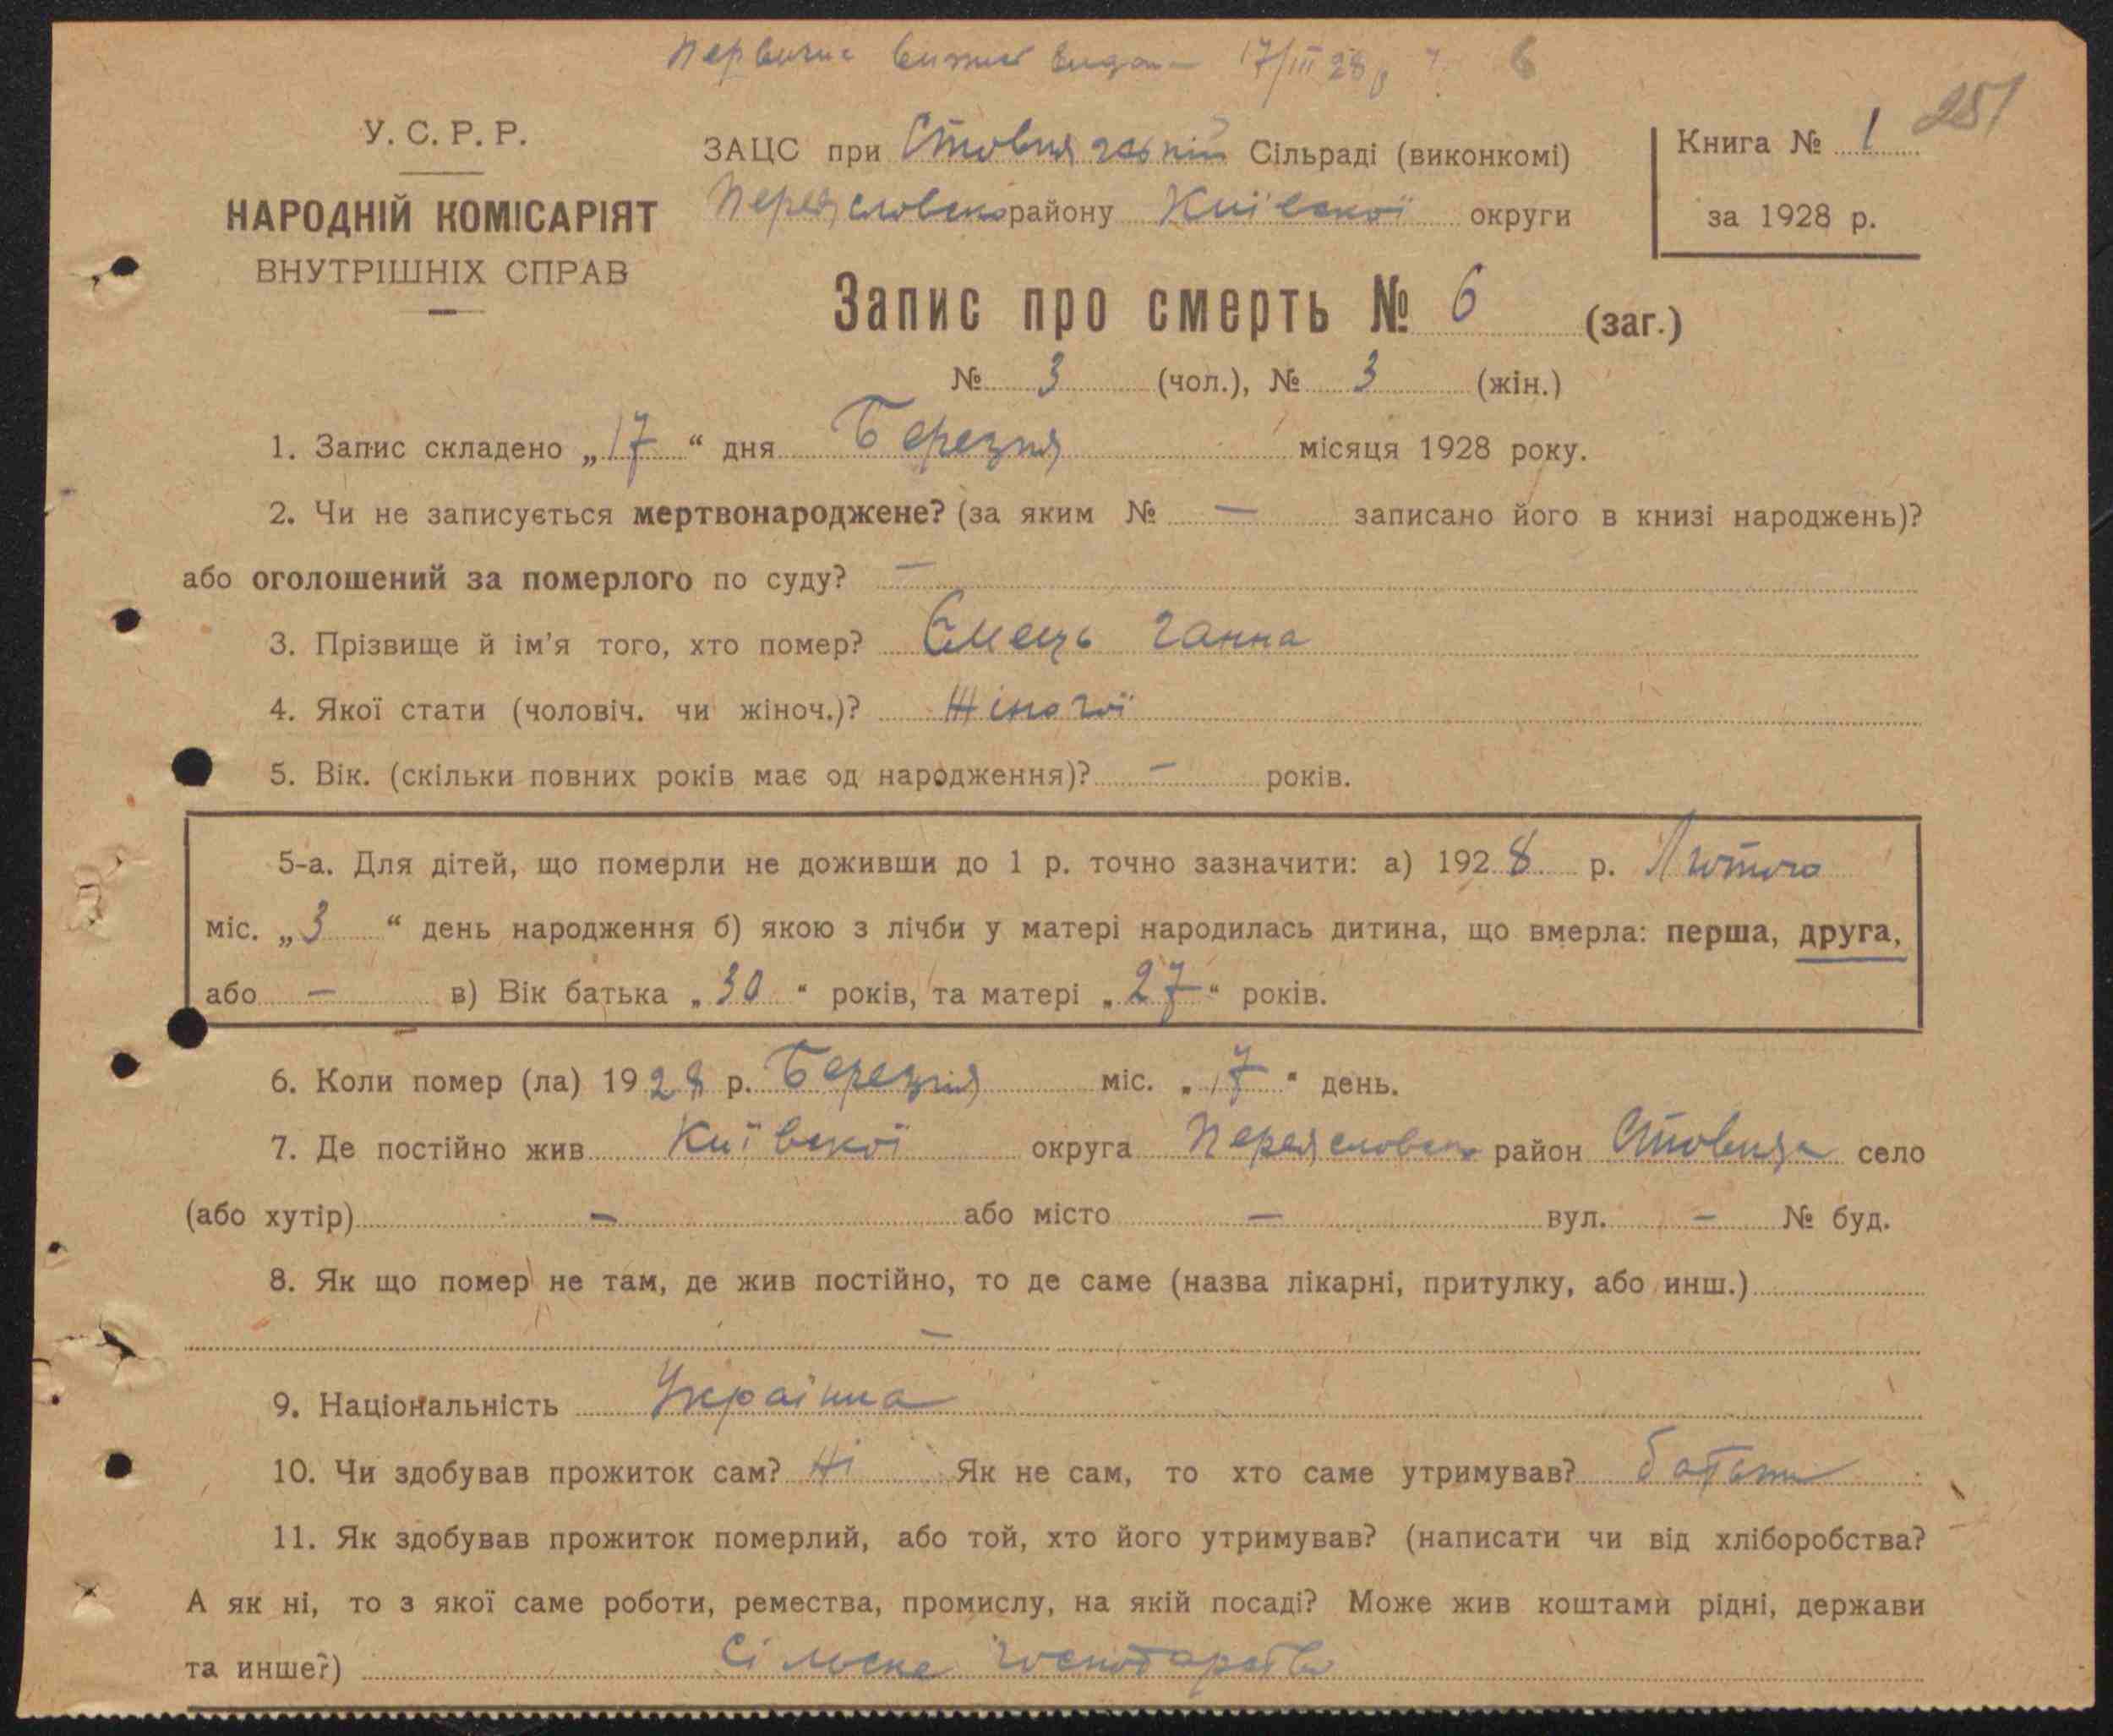 Первичне виписи видана 17/III 28 р. 6
251
У. С. Р. Р.
НАРОДНІЙ КОМІСАРІЯТ
ВНУТРІШНІХ СПРАВ
ЗАЦС при Стовпязькій Сільраді (виконкомі)
Переяславсько району Київської округи
Книга № 1
за 1928 р.
Запис про смерть № 6 (заг.)
№ 3 (чол.), № 3 (жін.)
1. Запис складено „17“ дня Березня місяця 1928 року.
2. Чи не записується мертвонароджене? (за яким № — записано його в книзі народжень)?
або оголошений за померлого по суду? —
3. Прізвище й ім'я того, хто помер? Ємець Ганна
4. Якої стати (чоловіч. чи жіноч.)? Жіночої
5. Вік. (скільки повних років має од народження)? — років.
5-а. Для дітей, що померли не доживши до 1 р. точно зазначити: а) 1928 р. Лютого
міс. „3“ день народження б) якою з лічби у матері народилась дитина, що вмерла: перша, друга,
або — в) Вік батька „30“ років, та матері „27“ років.
6. Коли помер (ла) 1928 р. Березня міс. „17“ день.
7. Де постійно жив Київської округа Переяславсько район Стовпяги село
(або хутір) — або місто — вул. — № буд.
8. Як що помер не там, де жив постійно, то де саме (назва лікарні, притулку, або инш.)
—
9. Національність Українка
10. Чи здобував прожиток сам? Ні Як не сам, то хто саме утримував? батьки
11. Як здобував прожиток померлий, або той, хто його утримував? (написати чи від хліборобства?
А як ні, то з якої саме роботи, ремества, промислу, на якій посаді? Може жив коштами рідні, держави
та инше?) Сільське господарство